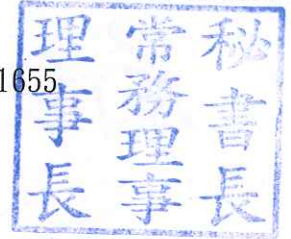 1655
秘書長
常務理事
理事長